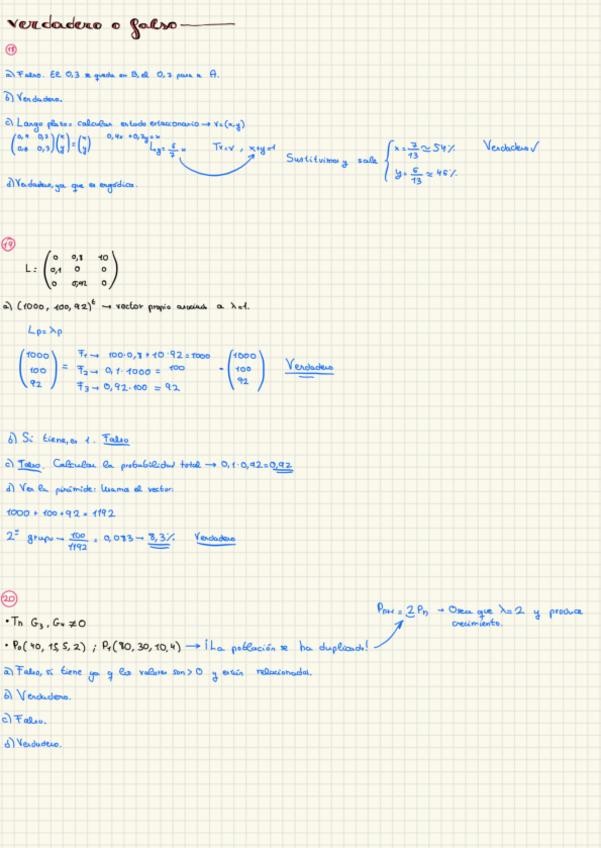 verdadero o falso
18
a) Falso. El 0,3 se queda en B, el 0,7 pasa a A.
b) Verdadero.
c) Largo plazo = calcular estado estacionario → v=(x,y)
Tv=v, x+y=1
Sustituimos y sale { x = 7/13 ≃ 54%
y = 6/13 ≃ 46%
Verdadero ✓
d) Verdadero, ya que es ergódica.
19
L: ( 0 0,8 10
0,1 0 0
0 0,92 0 )
a) (1000, 100, 92)ᵗ → vector propio asociado a λ=1.
Lp=λp
( 1000 100 92 ) = F₁ → 100·0,8 + 10·92 = 1000
F₂ → 0,1·1000 = 100
F₃ → 0,92·100 = 92
= ( 1000 100 92 ) Verdadero
b) Si tiene, es 1. Falso
c) Falso. Calcular la probabilidad total → 0,1·0,92=0,92
d) Ver la pirámide:
1000 + 100 + 92 = 1192
2º grupo → 100/1192 = 0,083 → 8,3% Verdadero
20
Pn+1 = 2 Pn → O sea que λ=2 y produce
crecimiento.
• Tn G₃, G₄ ≠ 0
• P₀(40, 15, 5, 2) ; P₁(80, 30, 10, 4) → ¡La población se ha duplicado!
a) Falso, si tiene ya q los valores son > 0 y están relacionados.
b) Verdadero.
c) Falso.
d) Verdadero.